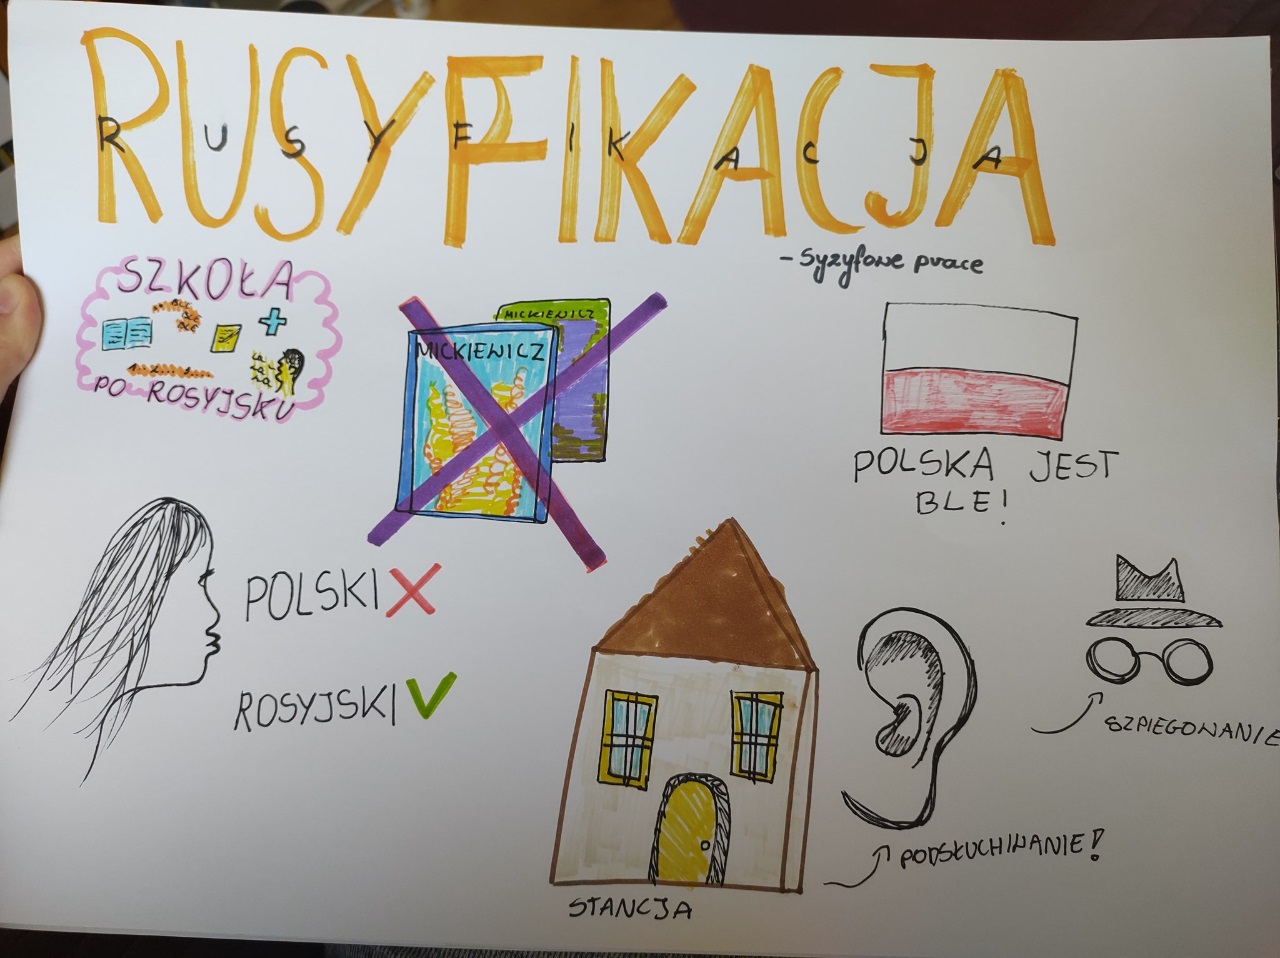 RUSYFIKACJA
RUSYFIKACJA
- Syzyfowe prace
SZKOŁA
PO ROSYJSKU
MICKIEWICZ
MICKIEWICZ
POLSKA JEST
BLE!
POLSKI
ROSYJSKI
SZPIEGOWANIE
PODSŁUCHIWANIE!
STANCJA